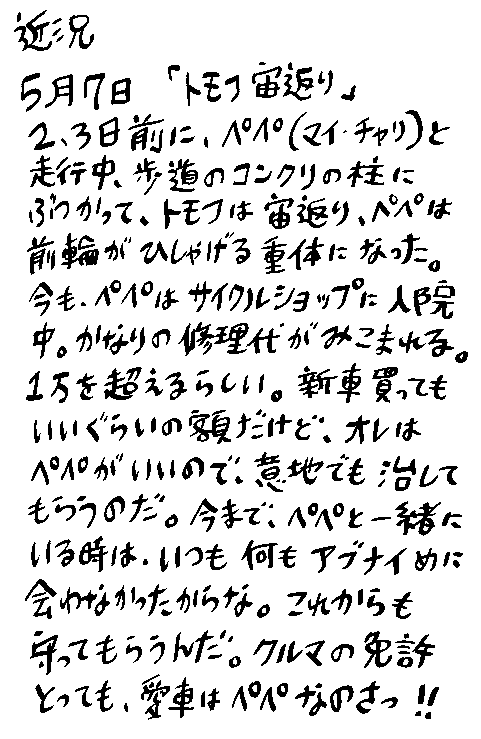 近況
5月7日 「トモフ宙返り」
2、3日前に、ペペ(マイ・チャリ)と
走行中、歩道のコンクリの柱に
ぶつかって、トモフは宙返り、ペペは
前輪がひしゃげる重体になった。
今も、ペペはサイクルショップに入院
中。かなりの修理代がみこまれる。
1万を超えるらしい。新車買っても
いいぐらいの額だけど、オレは
ペペがいいので、意地でも治して
もらうのだ。今まで、ペペと一緒に
いる時は、いつも何もアブナイめに
会わなかったからな。これからも
守ってもらうんだ。クルマの免許
とっても、愛車はペペなのさっ!!